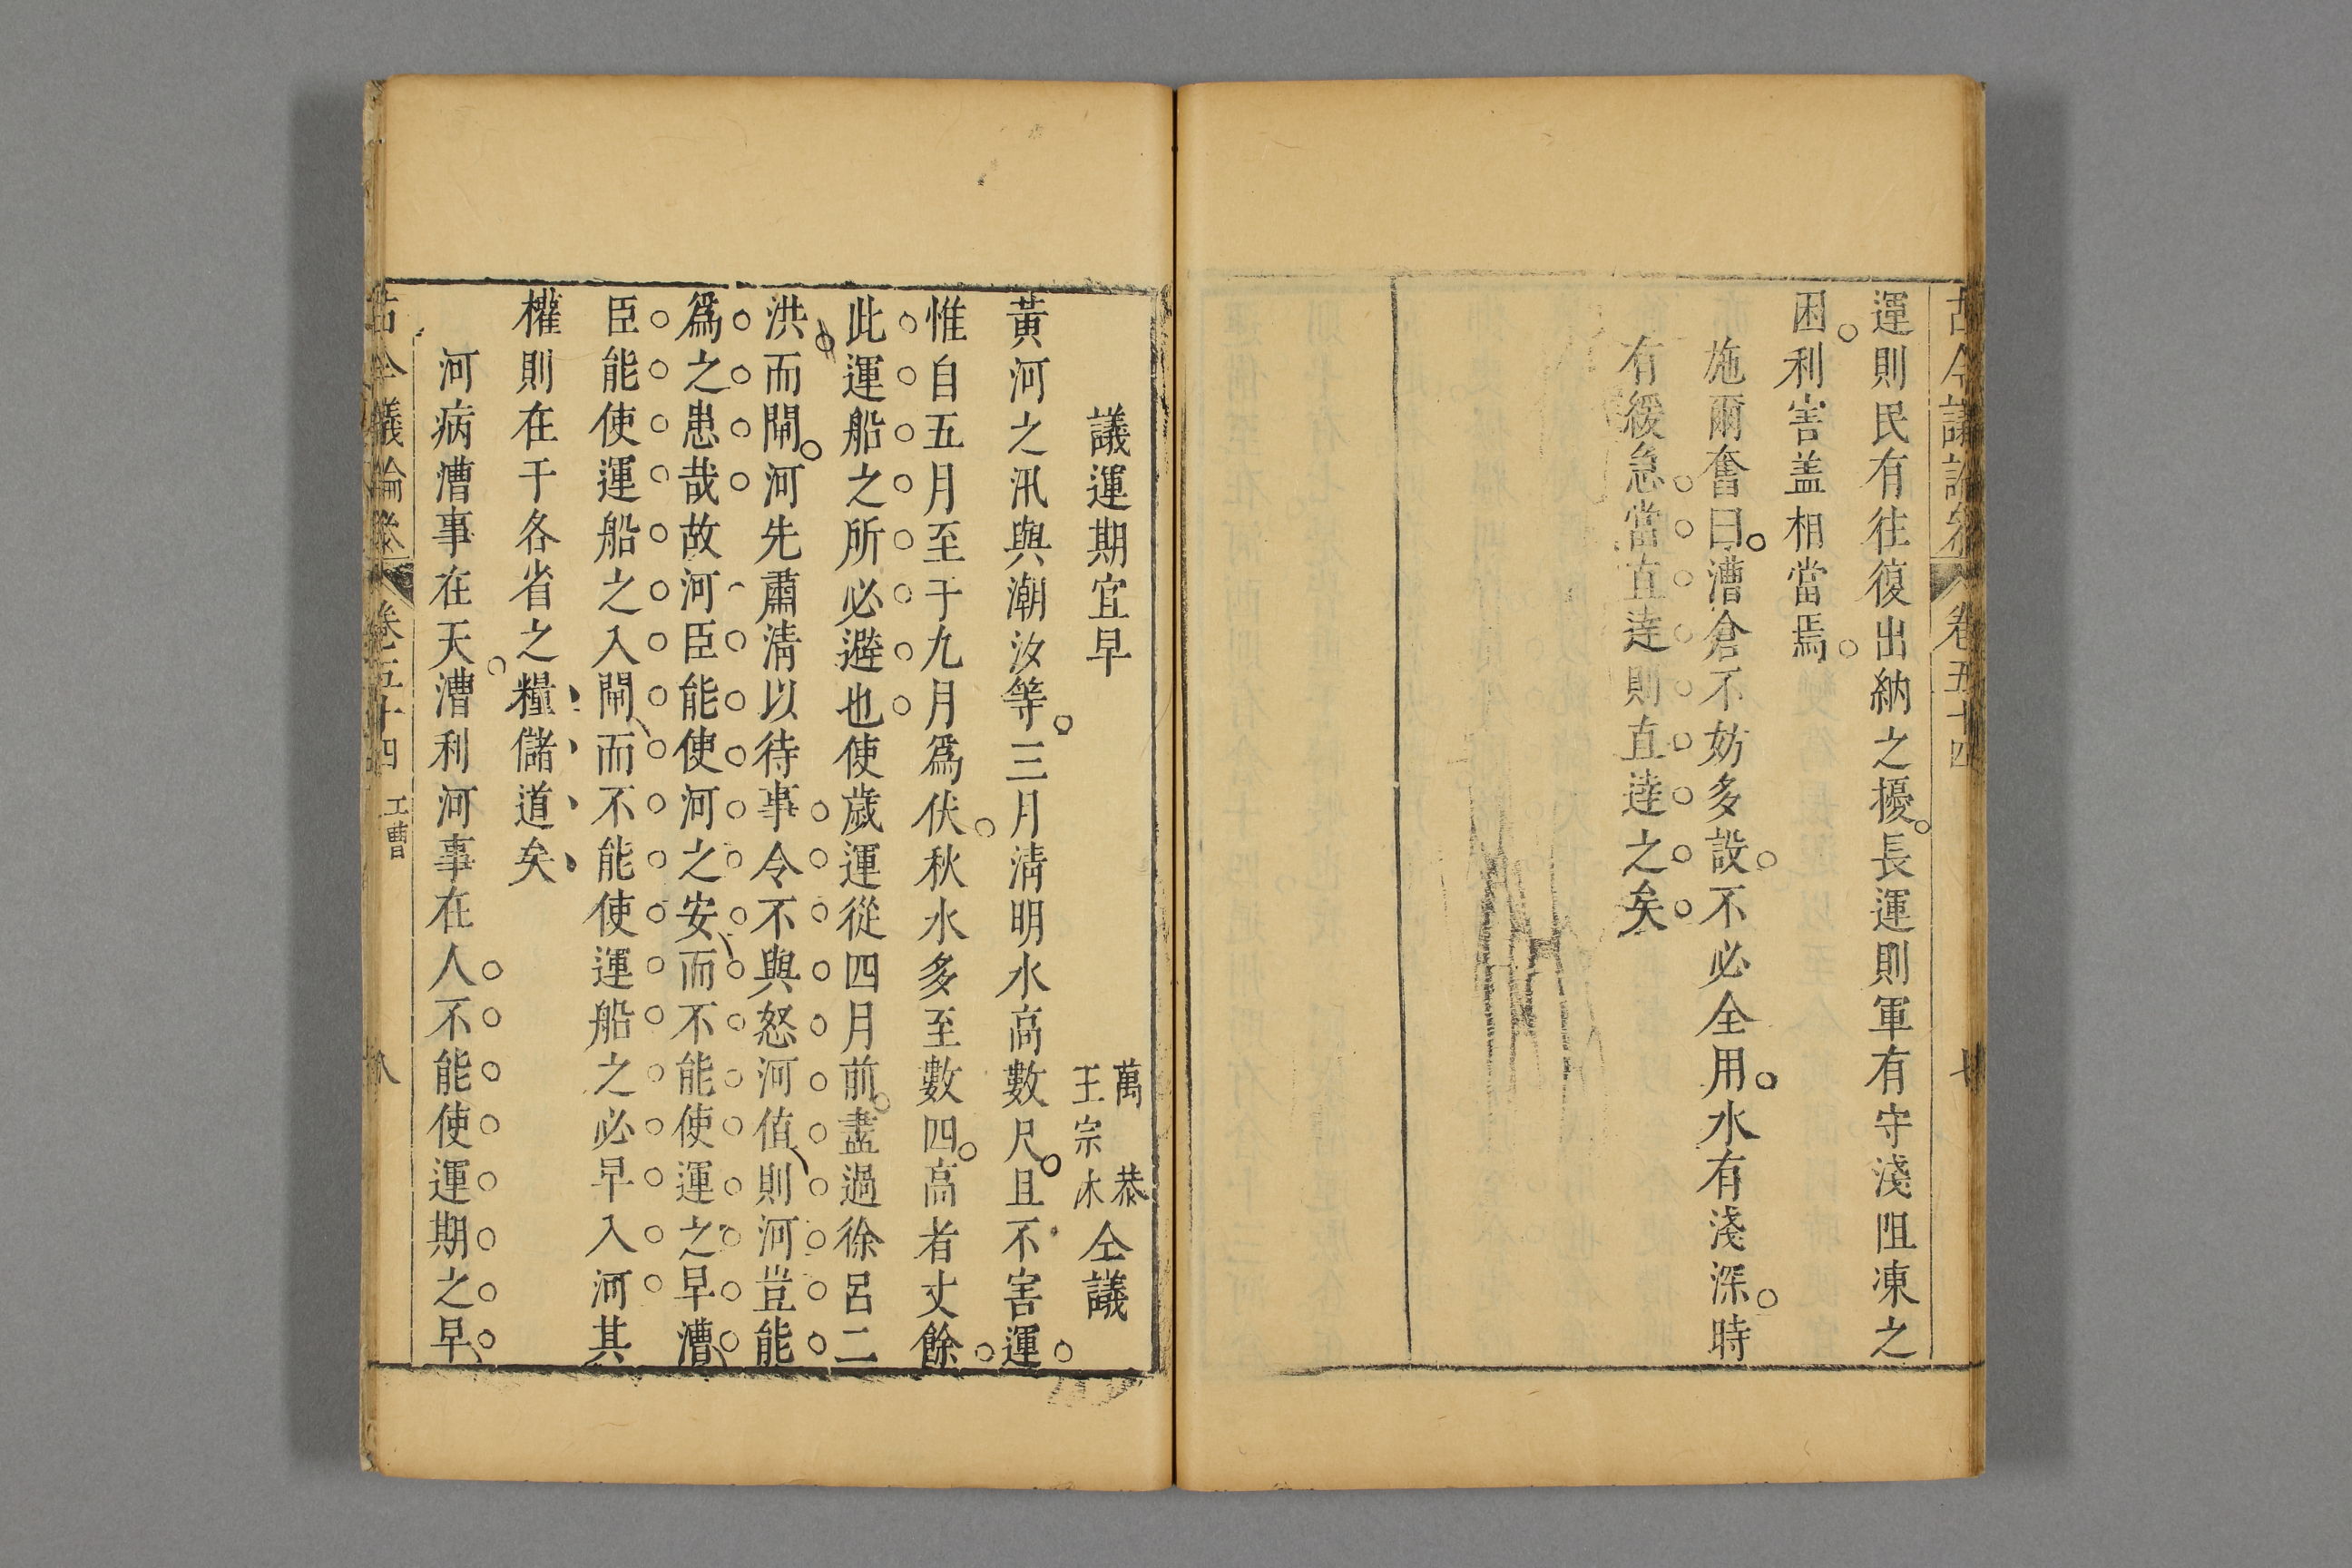 古今議論參 卷五十四 七
運則民有往復出納之擾長運則軍有守淺阻凍之
困利害盖相當焉
施爾奮曰漕倉不妨多設不必全用水有淺深時
有緩急當直達則直達之矣
議運期宜早
萬恭
王宗沐
仝議
黃河之汛與潮汝等三月清明水高數尺且不害運
惟自五月至于九月爲伏秋水多至數四高者丈餘
此運船之所必避也使歲運從四月前盡過徐呂二
洪而閘河先肅清以待事令不與怒河值則河豈能
爲之患哉故河臣能使河之安而不能使運之早漕
臣能使運船之入閘而不能使運船之必早入河其
權則在于各省之糧儲道矣
河病漕事在天漕利河事在人不能使運期之早
古今議論參 卷五十四 工曹 八